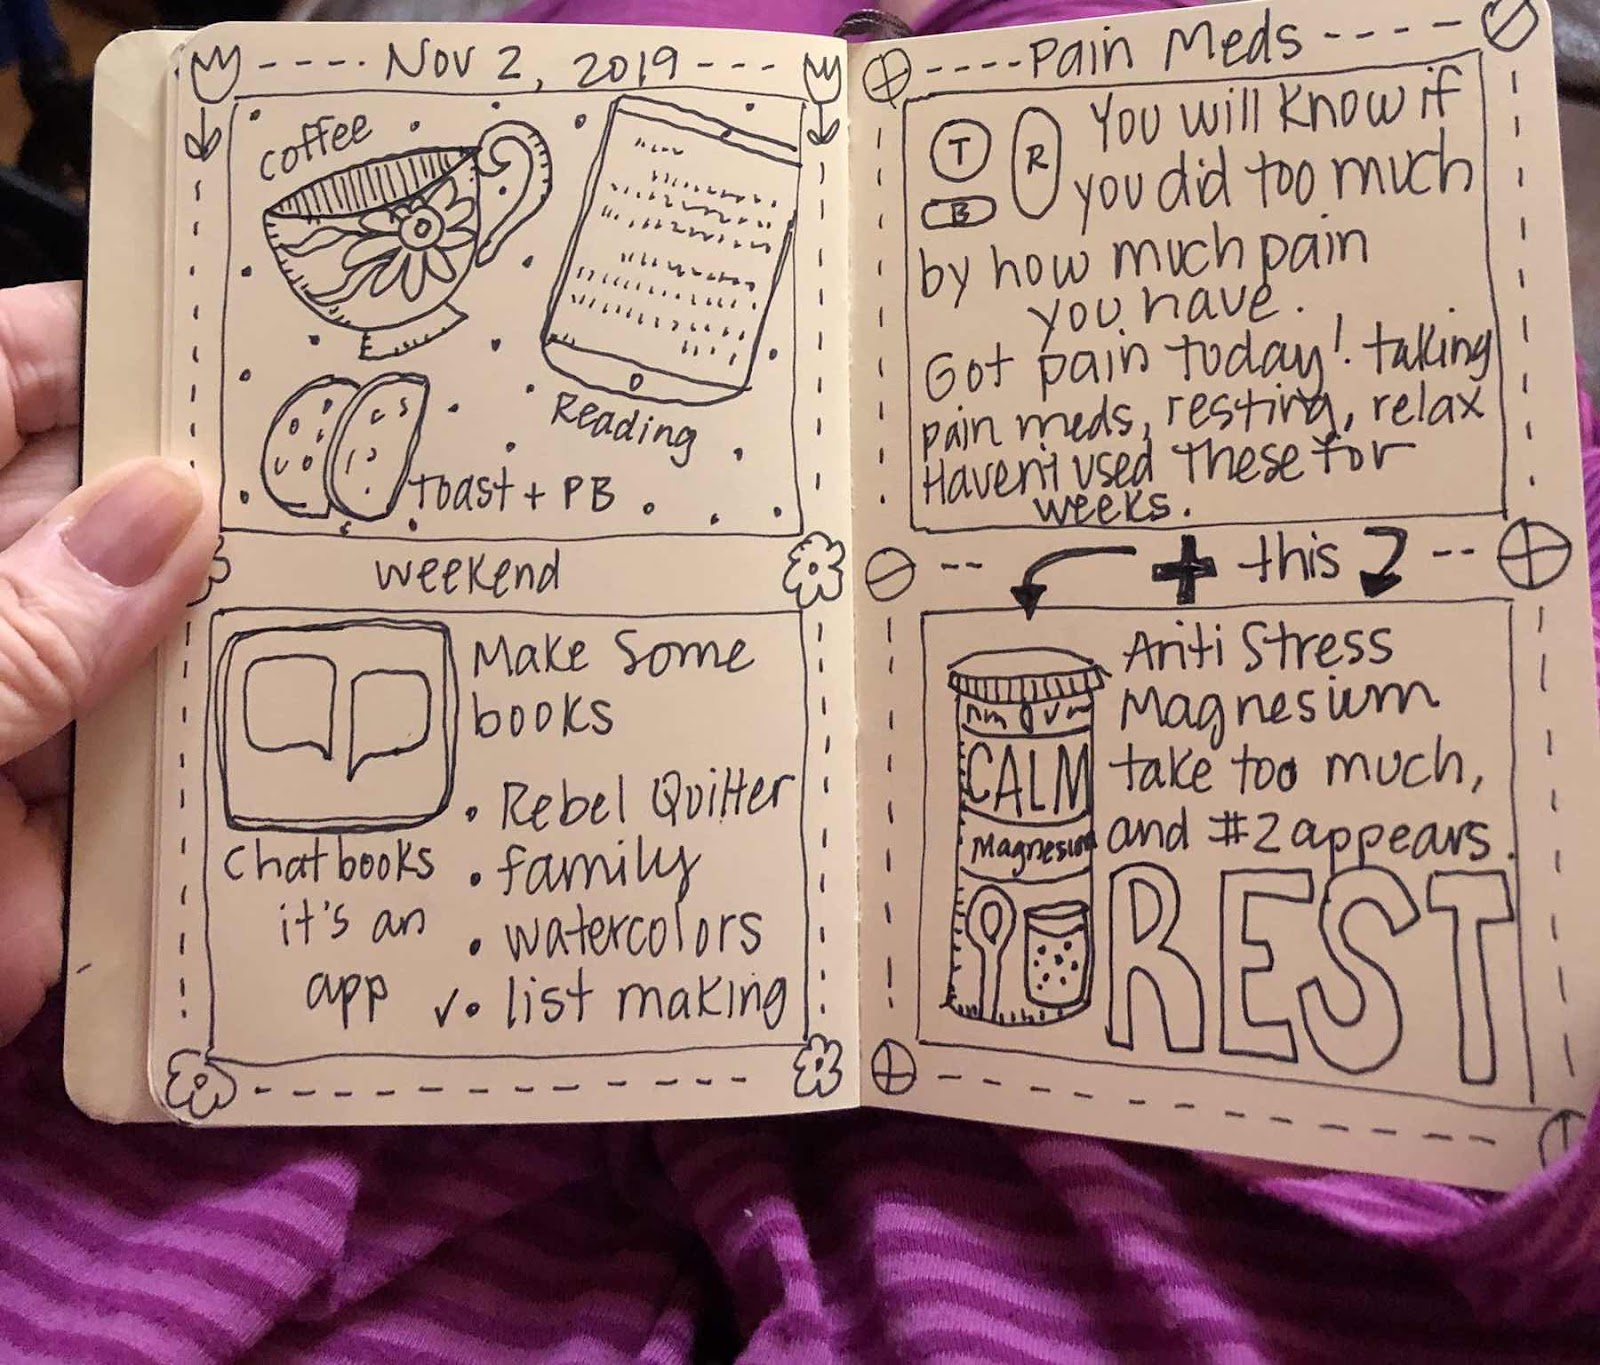 Nov 2, 2019
coffee
Reading
Toast + PB
weekend
Make Some
books
• Rebel Quilter
• family
• watercolors
✓• list making
Chatbooks
it's an
app
Pain Meds
T
R
B
You will know if
you did too much
by how much pain
you have.
Got pain today! taking
pain meds, resting, relax
Haven't used these for
weeks.
+ this
CALM
Magnesium
Anti Stress
Magnesium
take too much,
and #2 appears.
REST